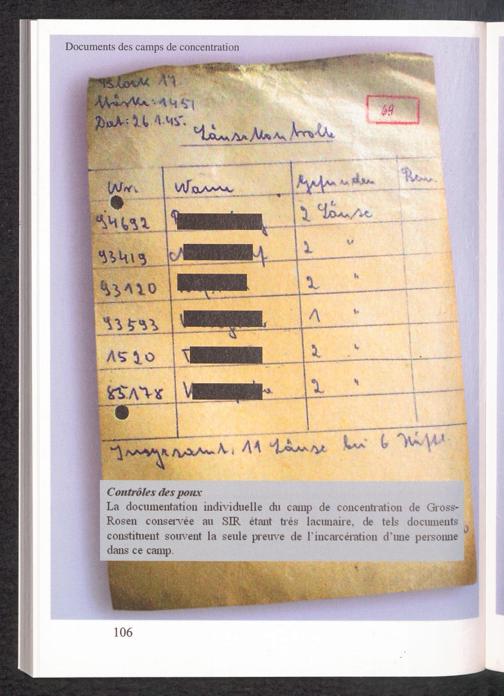 Documents des camps de concentration
Block 17
Stärke: 1451
Dat: 26 1.45.
69
Läusekontrolle
Nr. Name Gefunden Bem.
94692 2 Läuse
93419 2 "
93120 2 "
93593 1 "
1520 2 "
85178 2 "
Insgesamt. 11 Läuse bei 6 Häftl.
Contrôles des poux
La documentation individuelle du camp de concentration de Gross-
Rosen conservée au SIR étant très lacunaire, de tels documents
constituent souvent la seule preuve de l'incarcération d'une personne
dans ce camp.
106